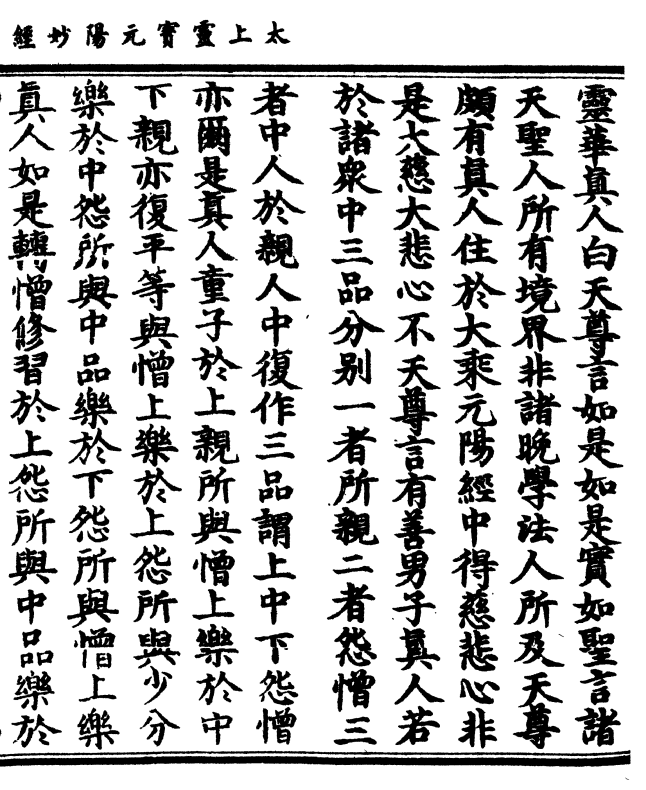 太上靈寳元陽妙經
靈華真人白天尊言如是如是實如聖言諸
天聖人所有境界非諸晚學法人所及天尊
頗有真人住於大乘元陽經中得慈悲心非
是大慈大悲心不天尊言有善男子真人若
於諸衆中三品分别一者所親二者怨憎三
者中人於親人中復作三品謂上中下怨憎
亦爾是真人童子於上親所與憎上樂於中
下親亦復平等與憎上樂於上怨所與少分
樂於中怨所與中品樂於下怨所與憎上樂
真人如是轉憎修習於上怨所與中品樂於